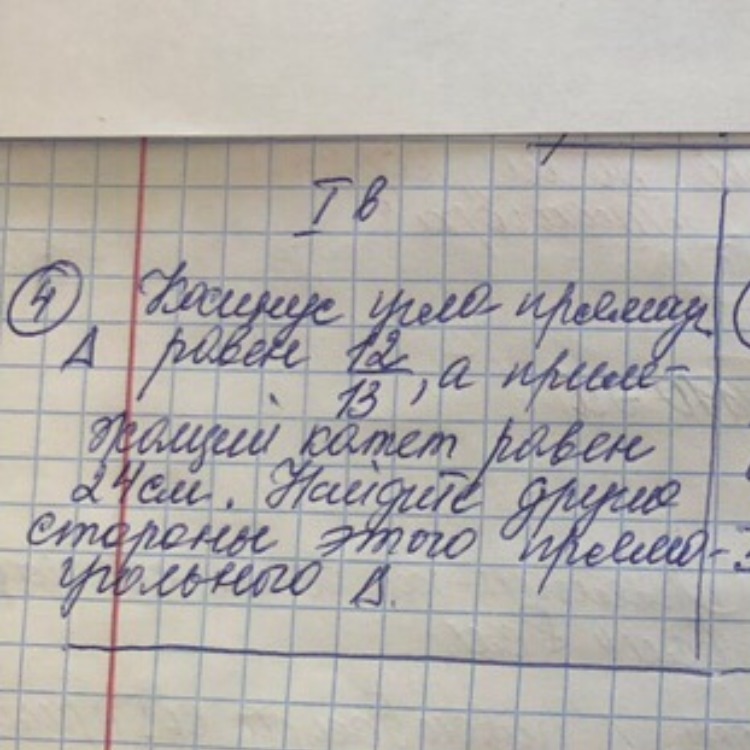 I в
④ Косинус угла прямоуг
Δ равен 12/13, а приле-
жащий катет равен
24 см. Найдите другие
стороны этого прямо-
угольного Δ.